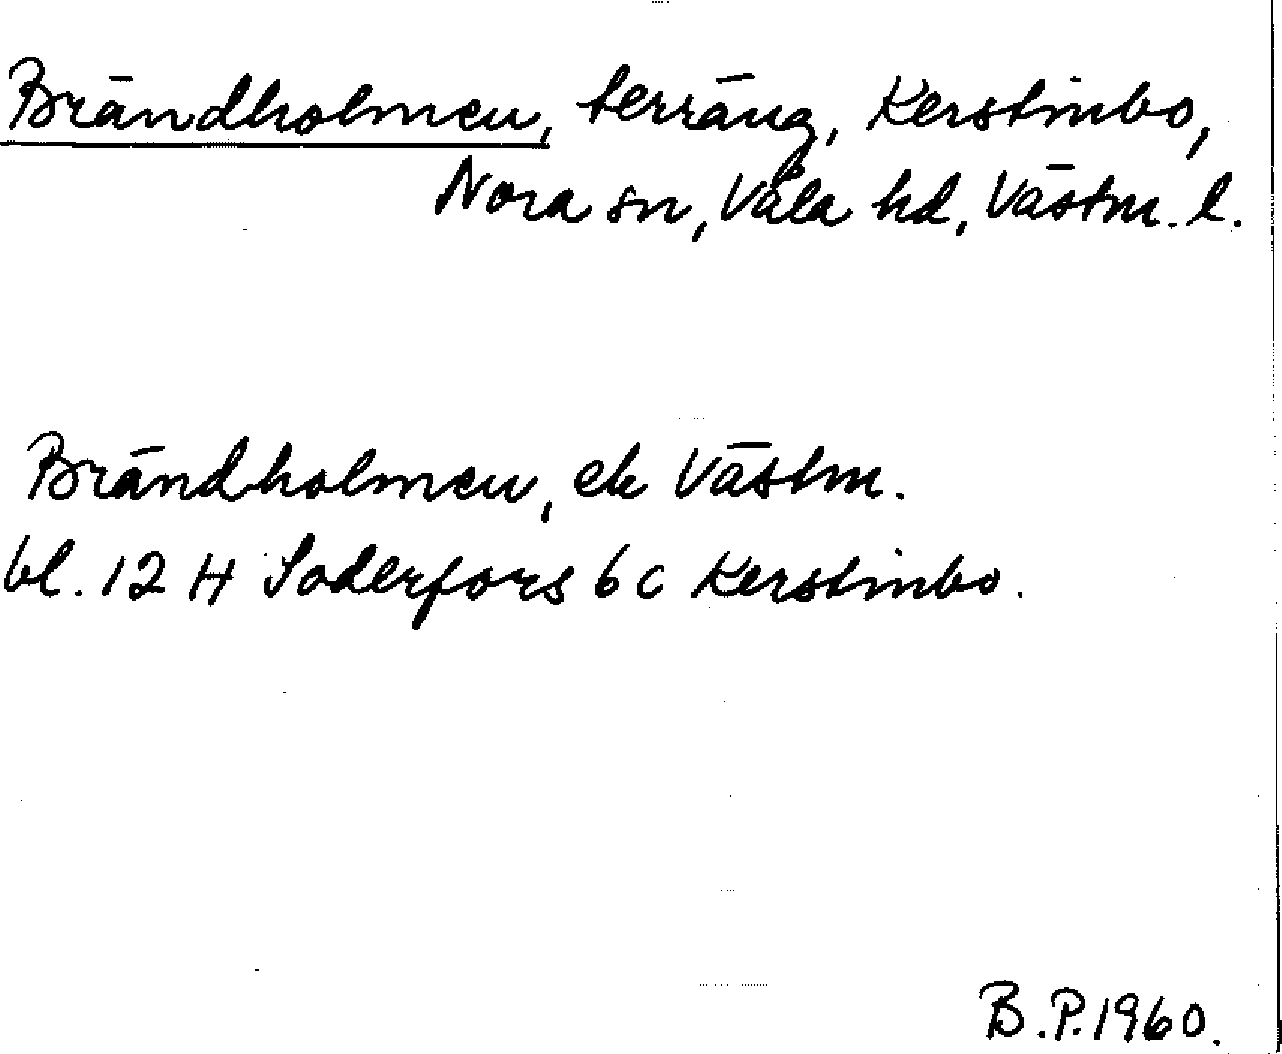 Brändholmen, terräng, Kerstinbo,
Nora sn, Våla hd, Västm. l.
Brändholmen, ek Västm.
bl. 12 H Söderfors 6 c Kerstinbo.
B.P. 1960.